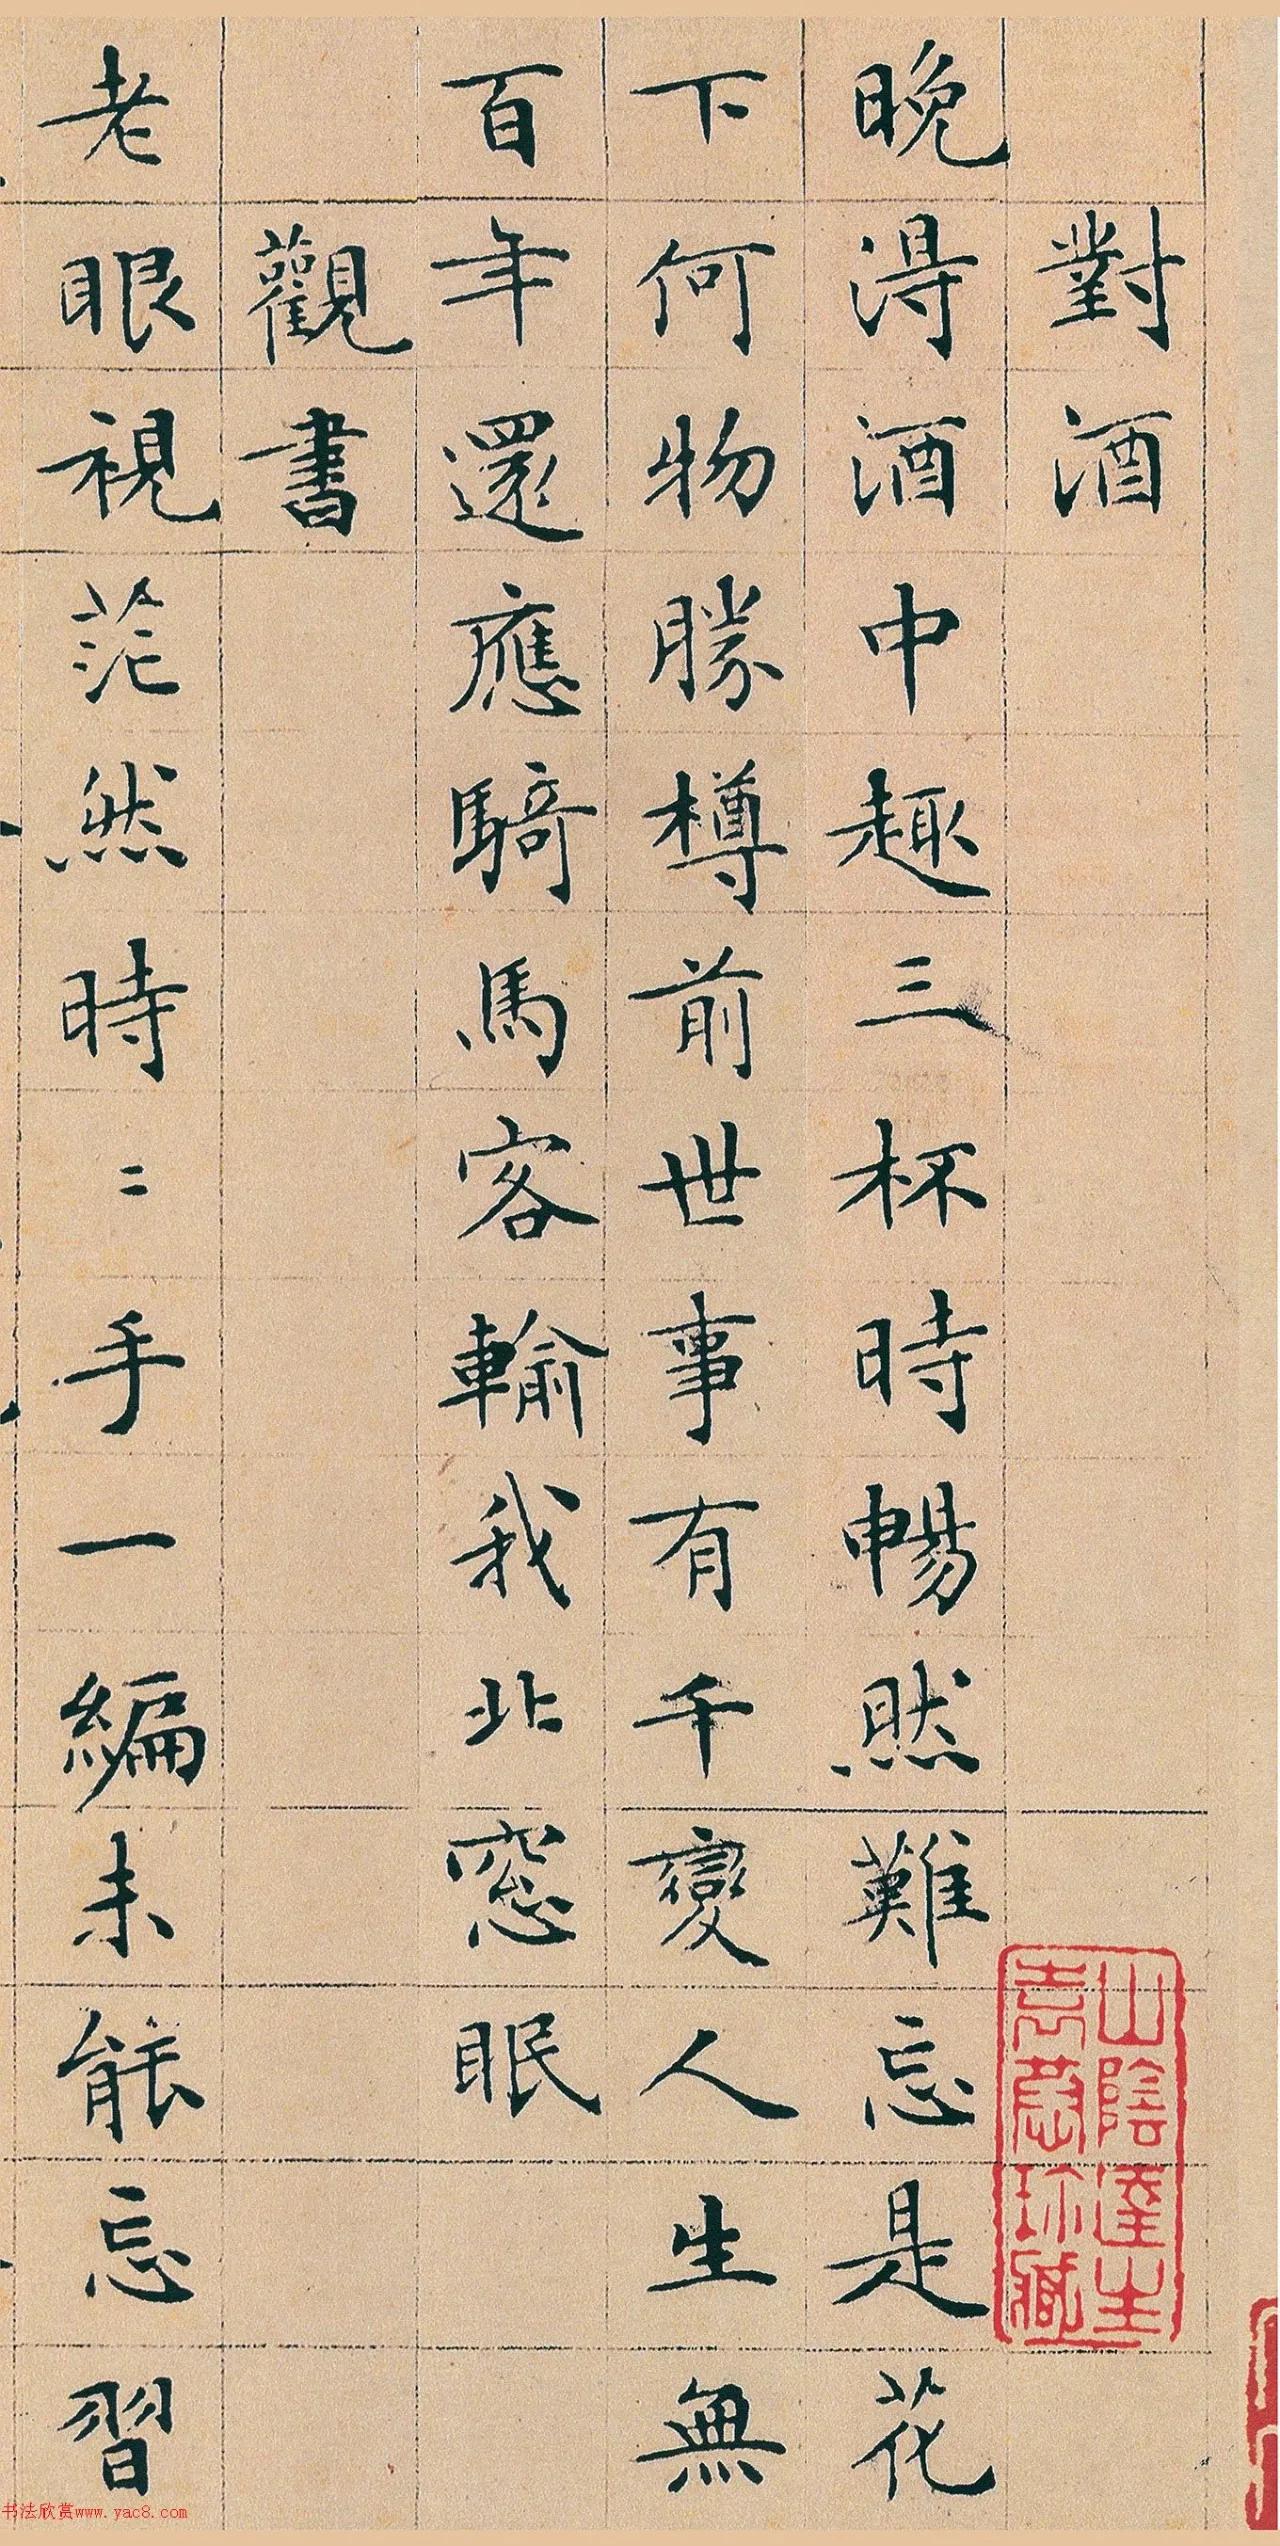 對酒
晚得酒中趣三杯時暢然難忘是花
下何物勝樽前世事有千變人生無
百年還應騎馬客輸我北窓眠
觀書
老眼視茫然時〻手一編未能忘習
山陰達生
吉葊珎藏
书法欣赏www.yac8.com